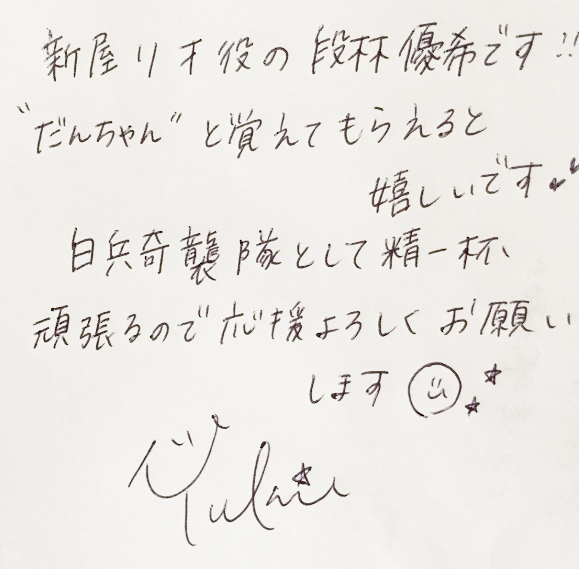 新屋リオ役の段林優希です!!
"だんちゃん"と覚えてもらえると
嬉しいです
白兵奇襲隊として精一杯、
頑張るので応援よろしくお願い
します